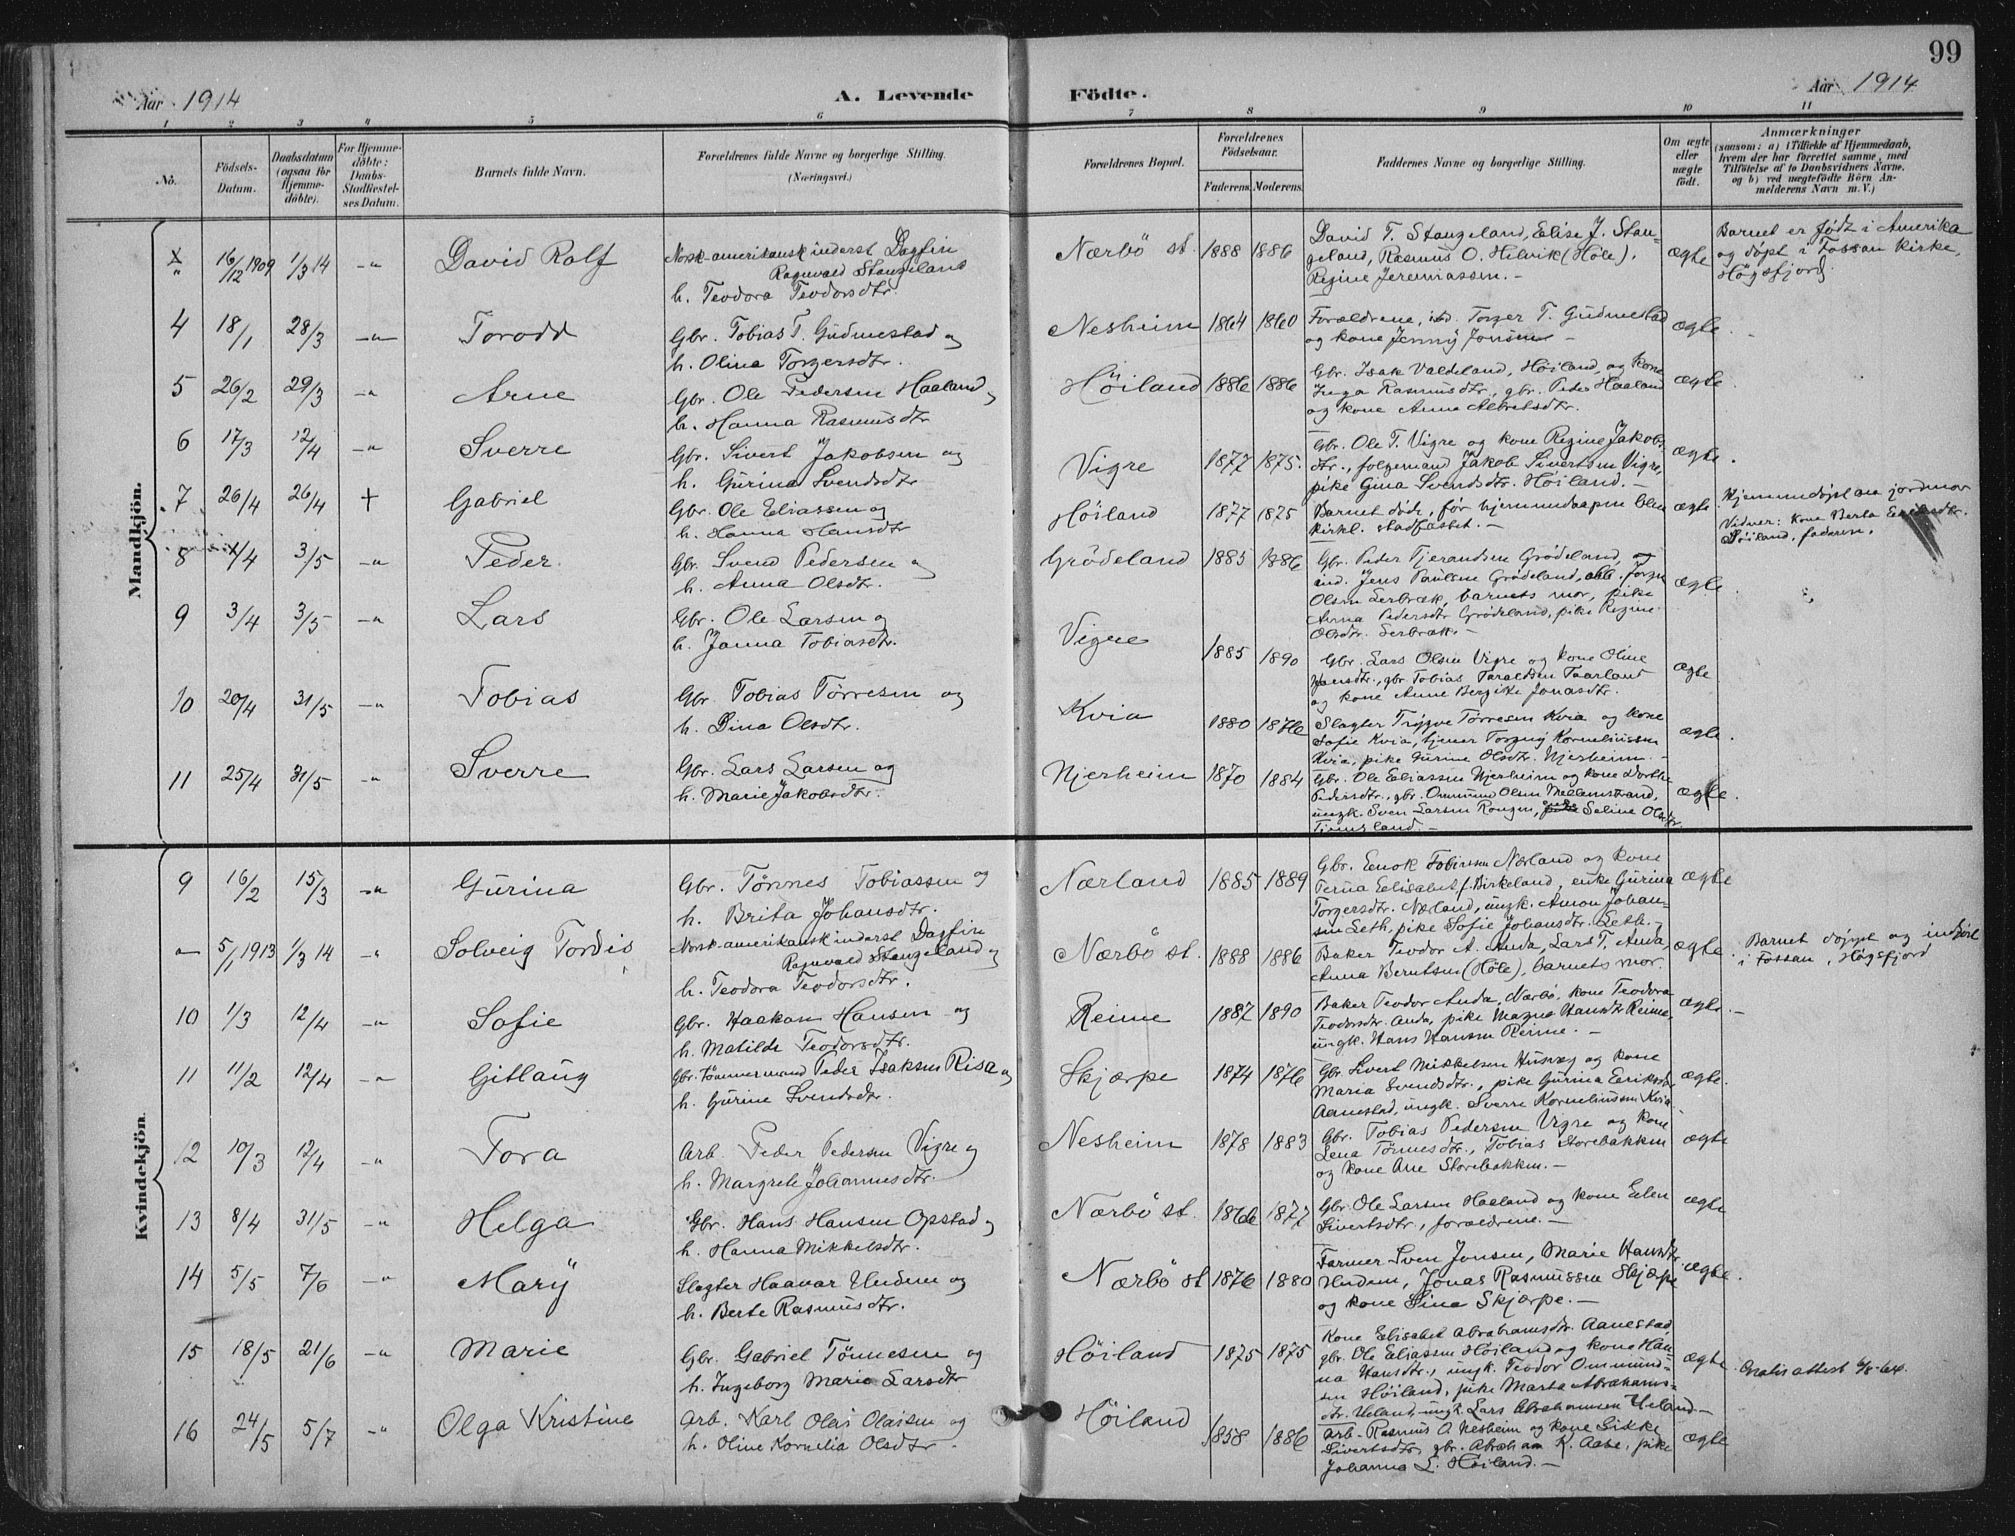 99
Aar 1914
A. Levende
Födte.
Aar 1914
1 2 3 4 5 6 7 8 9 10 11
No.
Födsels-Datum.
Daabsdatum (ogsaa for Hjemmedöbte).
For Hjemmedöbte: Daabs-Stadfæstelses Datum.
Barnets fulde Navn.
Forældrenes fulde Navne og borgerlige Stilling.
(Næringsvei.)
Forældrenes Bopæl.
Forældrenes Födselsaar.
Faderens. Moderens.
Faddernes Navne og borgerlige Stilling.
Om ægte eller uægte födt.
Anmærkninger
(saasom: a) i Tilfælde af Hjemmedaab, hvem der har forrettet samme, med Tilföielse af to Daabsvidners Navne. og b) ved uægtefödte Börn Anmelderens Navn m. V.)
Mandkjön.
16/12 1909 1/3 14 -"- David Ralf
Norsk-amerikansk inderst Dagfin
Ragnvald Stangeland
h. Teodora Teodorsdtr.
Nærbö st. 1888 1886
David T. Stangeland, Elise J. Stan-
geland, Rasmus O. Helvik (Höle),
Regine Jeremiassen. -
ægte
Barnet er födt i Amerika
og döpt i Fossan kirke,
Högsfjord.
4 18/1 28/3 -"- Torodd
Gbr. Tobias T. Gudmestad og
h. Olina Torgersdtr.
Nesheim 1864 1860
Forældrene, Torger T. Gudmestad
og kone Jenny Jonsen -
ægte.
5 26/2 29/3 -"- Arne
Gbr. Ole Pedersen Haaland
h. Hanna Rasmusdtr
Höiland 1886 1886
Gbr. Isak Valdeland, Höiland, og kone
Inga Rasmusdtr., gbr. Peder Haaland
og kone Anna Albretsdtr.
ægte.
6 17/3 12/4 -"- Sverre
Gbr. Sivert Jakobsen og
h. Gurina Svendsdtr
Vigre 1877 1875.
Gbr. Ole T. Vigre og kone Regine Jakobs-
dtr., folgemand Jakob Sivertsen Vigre,
pike Gina Svendsdtr. Höiland. -
ægte.
7 26/4 26/4 + Gabriel
Gbr. Ole Eliassen og
h. Hanna Hansdtr
Höiland 1877 1875
Barnet döde, för hjemmedaapen blev
kirkl. stadfæstet. -
ægte.
Hjemmedöpt av jordmor
Vidner: kone Berta
Höiland, faderen.
8 4/4 3/5 -"- Peder
Gbr. Svend Pedersen og
h. Anna Olsdtr.
Grödeland 1885 1886
Gbr. Peder Tjerandsen Grödeland, og
Jens Paulsen Grödeland,
Olsen Serbræk, barnets mor, pike
Anna Pedersdtr Grödeland, pike Regine
Olsdtr. Serbræk. -
ægte
9 3/4 3/5 -"- Lars
Gbr. Ole Larsen og
h. Janna Tobiasdtr.
Vigre 1885 1890
Gbr. Lars Olsen Vigre og kone Oline
Hansdtr., gbr Tobias Taraldsen Taarland
og kone Anne Bergite Jonasdtr.
ægte
10 20/4 31/5 -"- Tobias
Gbr. Tobias Törresen og
h. Dina Olsdtr.
Kvia 1880 1876
Slagter Trygve Törresen Kvia og kone
Sofie Kvia, tjener Torgny Korneliussen
Kvia, pike Gurine Olsdtr. Njerheim. -
ægte.
11 25/4 31/5 -"- Sverre
Gbr. Lars Larsen og
h. Marie Jakobsdtr.
Njerheim 1870 1884
Gbr. Ole Eliassen Njerheim og kone Dorthe
Pedersdtr., gbr. Ommund Olsen Mellemstrand,
ungk. Sven Larsen Rongen, Seline Olsdtr.
-
ægte.
Kvindekjön.
9 16/2 15/3 -"- Gurina
Gbr. Tönnes Tobiassen og
h. Brita Johansdtr.
Nærland 1885 1889
Gbr. Enok Tobiassen Nærland og kone
Elisabet f. Birkeland, enke Gurina
Torgersdtr. Nærland, ungk. Amon Johan-
sen Leth, pike Sofie Johansdtr. Leth. -
ægte
5/1 1913 1/3 14 " Solveig Tordis
Norsk-amerikansk inderst Dagfin
Ragnvald Stangeland og
h. Teodora Teodorsdtr.
Nærbö st. 1888 1886
Baker Teodor A. Auda, Lars T. Auda,
Anna Berntsen (Höle), barnets mor.
ægte.
Barnet döpt og indfört
i Fossan, Högsfjord
10 1/3 12/4 -"- Sofie
Gbr. Haakon Hansen og
h. Matilde Teodorsdtr.
Reime 1887 1890
Baker Teodor Auda, Nærbö, kone Teodora
Teodorsdtr. Auda, pike Magna Hansdtr Reime,
ungk. Hans Hansen Reime. -
ægte.
11 11/2 12/4 -"- Gitlaug
Gbr. Tömmermand Peder Isaksen Risa og
h. Gurine Svendsdtr.
Skjærpe 1874 1876
Gbr. Sivert Mikkelsen Husvæg og kone
Maria Svendsdtr., pike Gurina Eriksdtr
Aanestad, ungk. Sverre Korneliussen Kvia
ægte.
12 10/3 12/4 -"- Tora
Arb. Peder Pedersen Vigre og
h. Margrete Johannesdtr.
Nesheim 1878 1883
Gbr. Tobias Pedersen Vigre og kone
Lena Tönnesdtr., Tobias Storebakken
og kone Ane Storebakken. -
ægte
13 8/4 31/5 -"- Helga
Gbr. Hans Hansen Opstad og
h. Hanna Mikkelsdtr.
Nærbö st. 1866 1877
Gbr. Ole Larsen Haaland og kone Elen
Sivertsdtr., forældrene. -
ægte
14 5/5 7/6 -"- Mary
Slagter Haavar Undem og
h. Berte Rasmusdtr.
Nærbö st 1876 1880
Farmer Sven Jonsen, Marie Hansdtr.
Undem, Jonas Rasmussen Skjærpe
og kone Sina Skjærpe. -
ægte.
15 18/5 21/6 -"- Marie
Gbr. Gabriel Tönnesen og
h. Ingeborg Marie Larsdtr
Höiland 1875 1875
Kone Elisabet Abrahamsdtr. Aanestad,
gbr. Ole Eliassen Höiland og kone Han-
na Hansdtr., ungk. Teodor Ommund-
sen Höiland, pike Marta Abrahams-
dtr. Ueland, ungk. Lars Abrahamsen Ueland -
ægte.
Gratis attest 6/8-64
16 24/5 5/7 -"- Olga Kristine
Arb. Karl Olai Olaisen og
h. Oline Kornelia Olsdtr.
Höiland 1858 1886
Arb. Rasmus A Nesheim og kone Sikke
Sivertsdtr, gbr. Abraham K. Aase, pike
Johanna L. Höiland. -
ægte